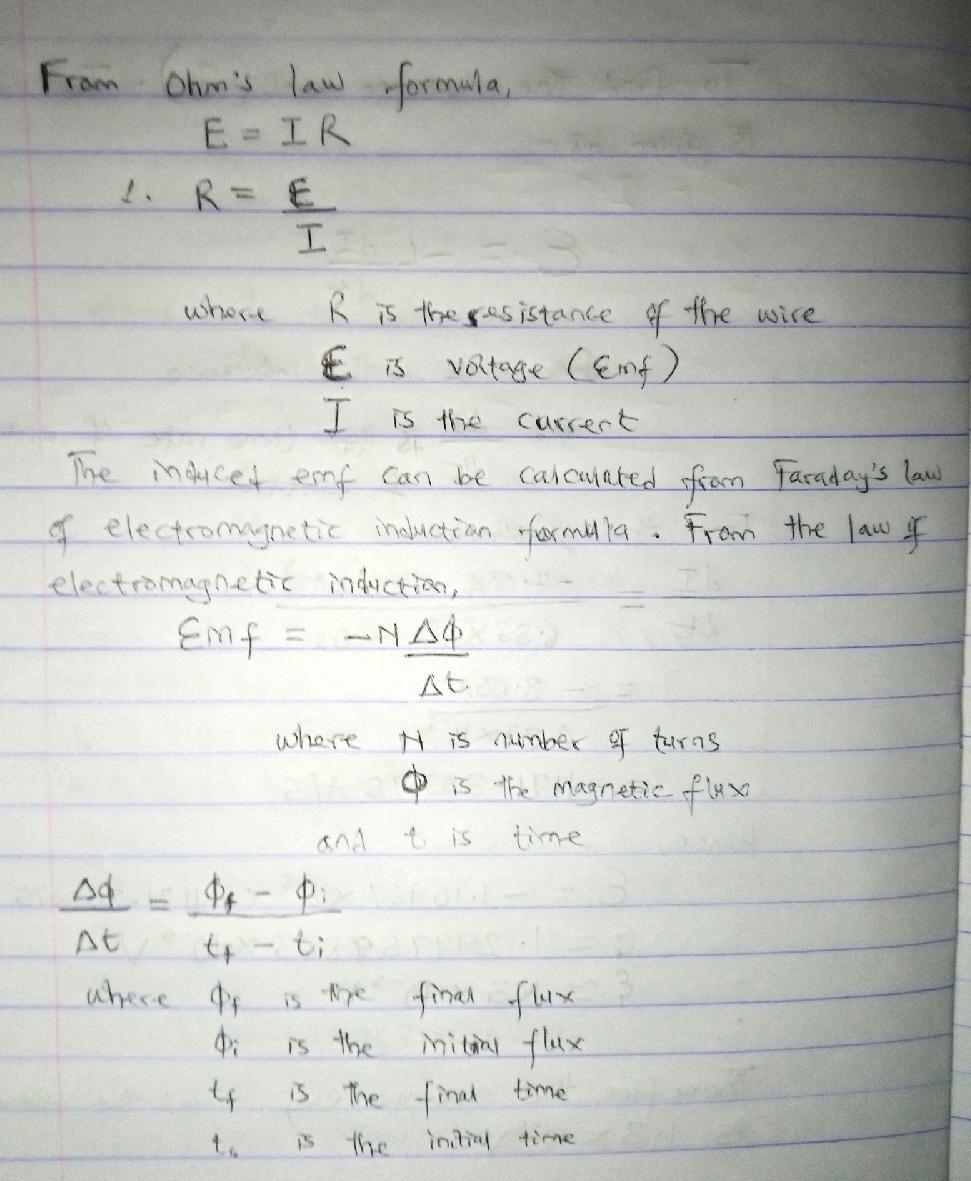 From Ohm's law formula,
E = IR
1. R = E
I
where R is the resistance of the wire
E is voltage (Emf)
I is the current
The induced emf can be calculated from Faraday's law
of electromagnetic induction formula. From the law of
electromagnetic induction,
Emf = -NΔϕ
Δt
where N is number of turns
ϕ is the magnetic flux
and t is time
Δϕ = ϕf - ϕi
Δt tf - ti
where ϕf is the final flux
ϕi is the initial flux
tf is the final time
ti is the initial time